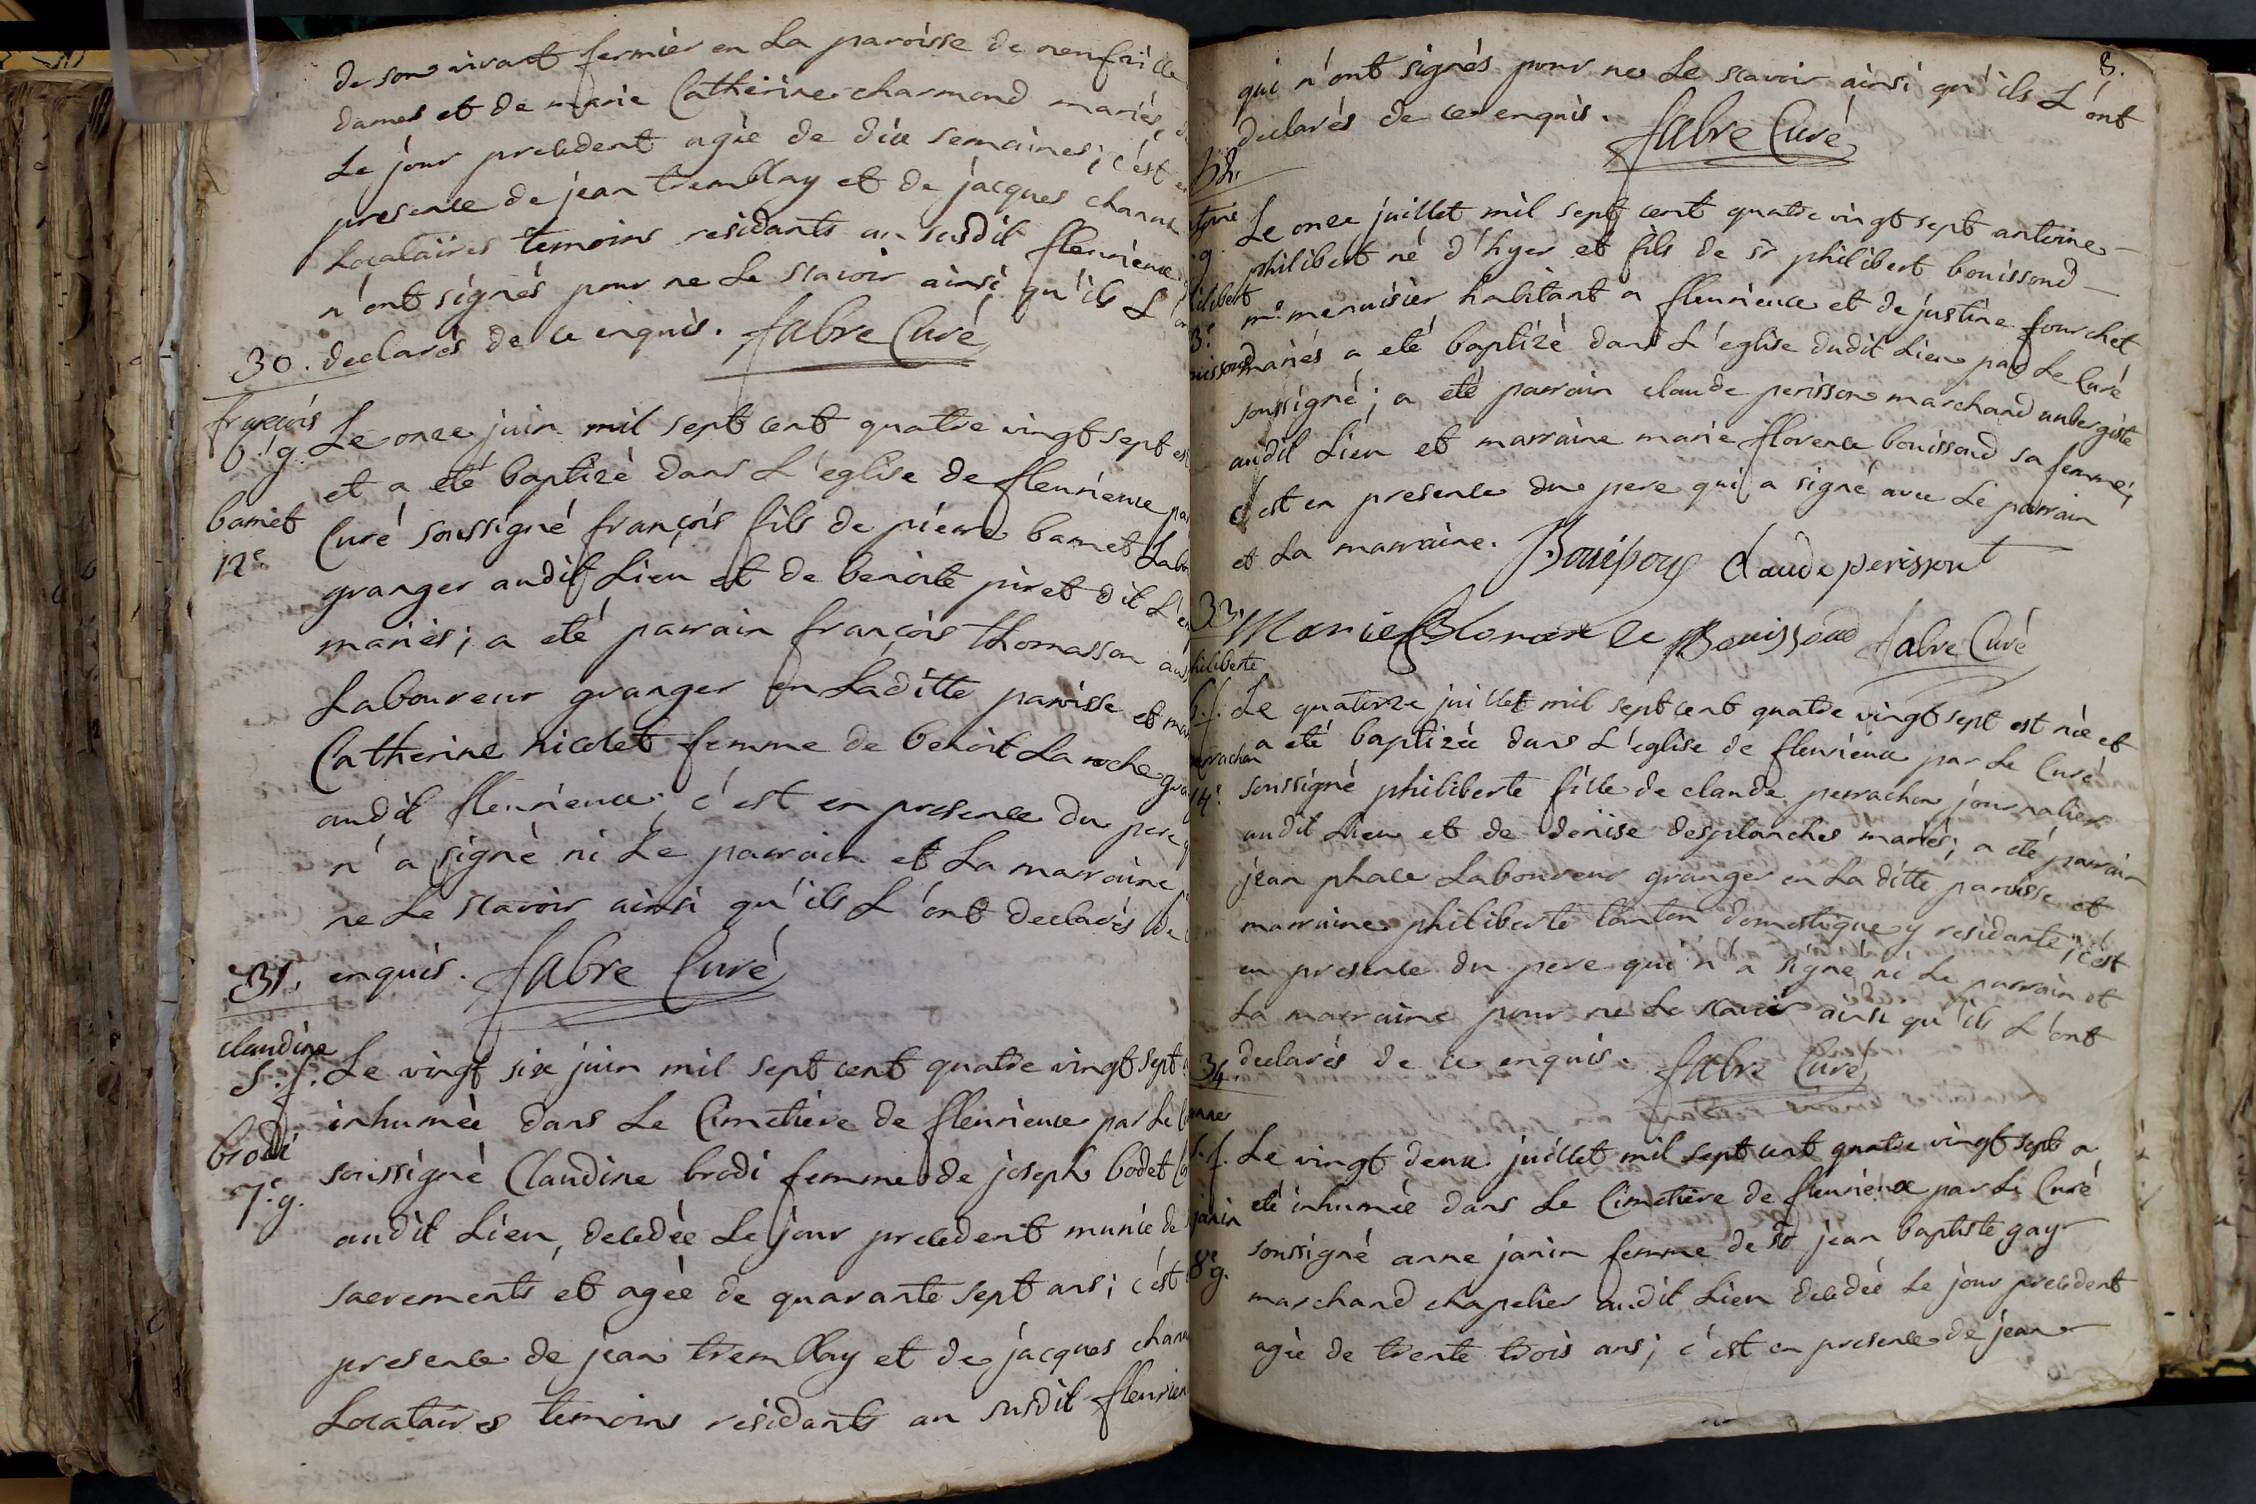 de son vivant fermier en La paroisse de neufville
dames et de marie Catherine charmond mariés,
Le jour precedent agée de dix semaines; c'est en
presence de jean tremblay et de jacques
Locataires temoins residants au susdit fleurieux
n'ont signés pour ne Le scavoir ainsi qu'ils L'
30. declarés de ce enquis. fabre Curé
françois
b. g. Le onze juin mil sept cent quatre vingt sept est
et a eté baptizé dans L'eglise de fleurieux par
bamet Curé soussigné françois fils de pierre bamet Lab
12e granger audit Lieu et de benoite piret dit
mariés; a eté parrain françois thomasson
Laboureur granger en Laditte paroisse et ma
Catherine nicolet femme de benoit La roche gra
audit fleurieux; c'est en presence du pere q
n'a signé ni Le parrain et La marraine p
ne Le scavoir ainsi qu'ils L'ont declarés de
31. enquis. fabre Curé
claudine
s. f. Le vingt six juin mil sept cent quatre vingt sept
inhumée dans Le Cimetiere de fleurieux par Le
brodi soussigné Claudine brodi femme de joseph bodet
7e g. audit Lieu, decedée Le jour precedent munie de
sacrements et agée de quarante sept ans; c'est
presence de jean tremblay et de jacques
Locataires temoins residants au susdit fleurieu
8.
qui n'ont signés pour ne Le scavoir ainsi qu'ils L'ont
declarés de ce enquis. fabre Curé
32.
toine Le onze juillet mil sept cent quatre vingt sept antoine
g. philibert né d'hyer et fils de sr philibert bouissond
ilibert me menuisier habitant a fleurieux et de justine fourchet
3e
uissond mariés a eté baptizé dans L'eglise dudit Lieu par Le Curé
soussigné; a eté parrain claude perisson marchand aubergiste
audit Lieu et marraine marie florence bouissond sa femme;
c'est en presence du pere qui a signé avec Le parrain
et La marraine. Claude perisson
33. Marie fabre Curé
hiliberte
b. f. Le quatorze juillet mil sept cent quatre vingt sept est née et
rrachon a eté baptizée dans L'eglise de fleurieux par Le Curé
14e soussigné philiberte fille de claude perrachon journalier
audit Lieu et de denise desplanches mariés; a eté parrain
jean phace Laboureur granger en La ditte paroisse et
marraine philiberte tonton domestique y residante; c'est
en presence du pere qui n'a signé ni Le parrain et
La marraine pour ne Le scavoir ainsi qu'ils L'ont
34. declarés de ce enquis. fabre Curé
anne
s. f. Le vingt deux juillet mil sept cent quatre vingt sept a
janin eté inhumée dans Le Cimetiere de fleurieux par Le Curé
8e g. soussigné anne janin femme de sr jean baptiste gay
marchand chapelier audit Lieu decedée Le jour precedent
agée de trente trois ans; c'est en presence de jean